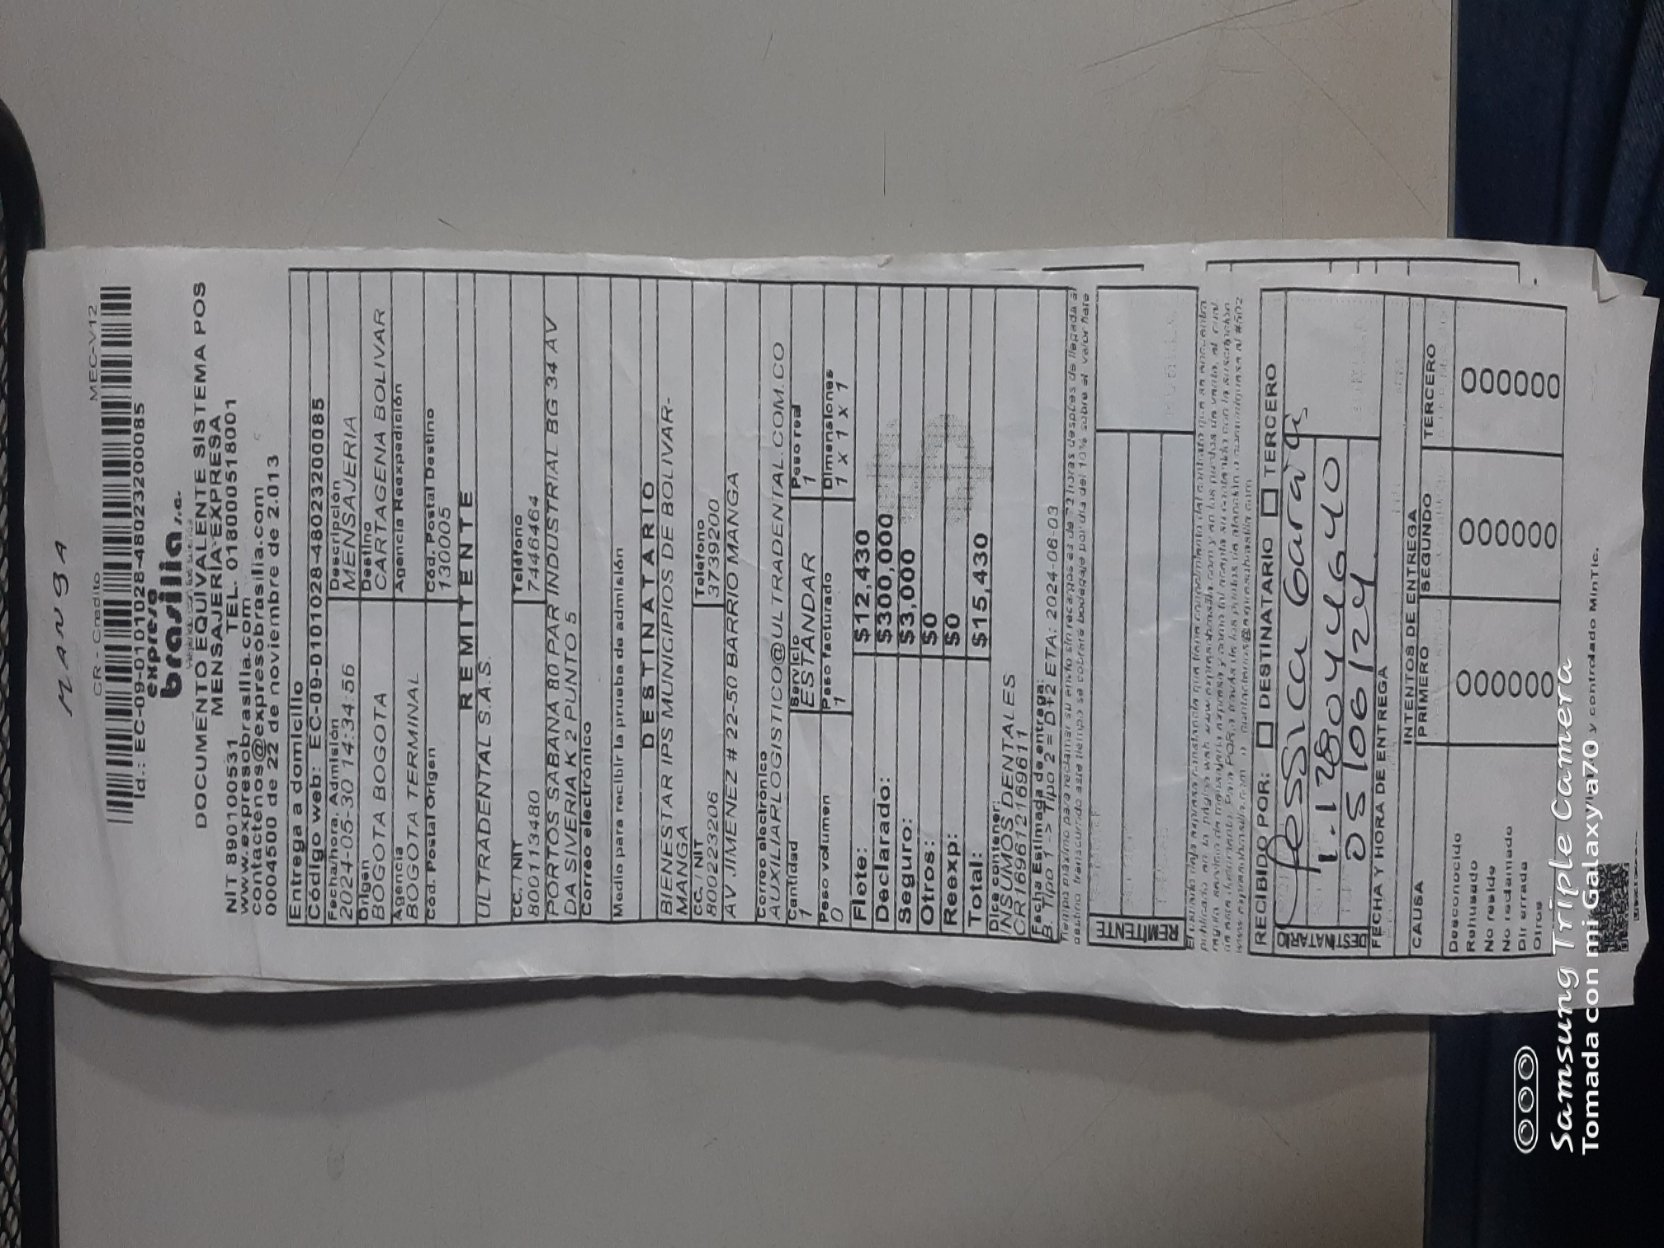 MANGA
CR - Credito MEC-V12
Id.: EC-09-0101028-480232000085
expreso
brasilia s.a.
DOCUMENTO EQUIVALENTE SISTEMA POS
MENSAJERÍA EXPRESA
NIT 890100531 TEL. 0180000518001
www.expresobrasilia.com
contactenos@expresobrasilia.com
0004500 de 22 de noviembre de 2.013
Entrega a domicilio
Código web: EC-09-0101028-480232000085
Fecha/hora. Admisión Descripción
2024-05-30 14:34:56 MENSAJERIA
Origen Destino
BOGOTA BOGOTA CARTAGENA BOLIVAR
Agencia Agencia Reexpedición
BOGOTA TERMINAL
Cód. Postal Origen Cód. Postal Destino
130005
REMITENTE
ULTRADENTAL S.A.S.
CC. / NIT Teléfono
8001113480 7446464
PORTOS SABANA 80 PAR INDUSTRIAL BG 34 AV
DA SIVERIA K 2 PUNTO 5
Correo electrónico
Medio para recibir la prueba de admisión
DESTINATARIO
BIENESTAR IPS MUNICIPIOS DE BOLIVAR-
MANGA
CC. / NIT Teléfono
800223206 3739200
AV JIMENEZ # 22-50 BARRIO MANGA
Correo electrónico
AUXILIARLOGISTICO@ULTRADENTAL.COM.CO
Cantidad Servicio Peso real
1 ESTANDAR 1
Peso volumen Peso facturado Dimensiones
0 1 1 x 1 x 1
Flete: $12,430
Declarado: $300,000
Seguro: $3,000
Otros: $0
Reexp: $0
Total: $15,430
Dice contener:
INSUMOS DENTALES
CR169612169611
Fecha Estimada d entrega:
B. Tipo 1 -> Tipo 2 = D+2 ETA: 2024-06-03
Tiempo máximo para reclamar su envío sin recargos es de 72 horas después de llegada a
destino transcurrido este tiempo se cobrará bodegaje por día del 10% sobre el valor flete
REMITENTE
RECIBIDO POR: DESTINATARIO TERCERO
DESTINATARIO
Jessica Garcia
1.128044640
05/06/24
FECHA Y HORA DE ENTREGA
INTENTOS DE ENTREGA
CAUSA PRIMERO SEGUNDO TERCERO
Desconocido O O O
Rehusado O O O
No reside O O O
No reclamado O O O
Dir errada O O O
Otros O O O
y controlado MinTic.
Samsung Triple Camera
Tomada con mi Galaxy a70